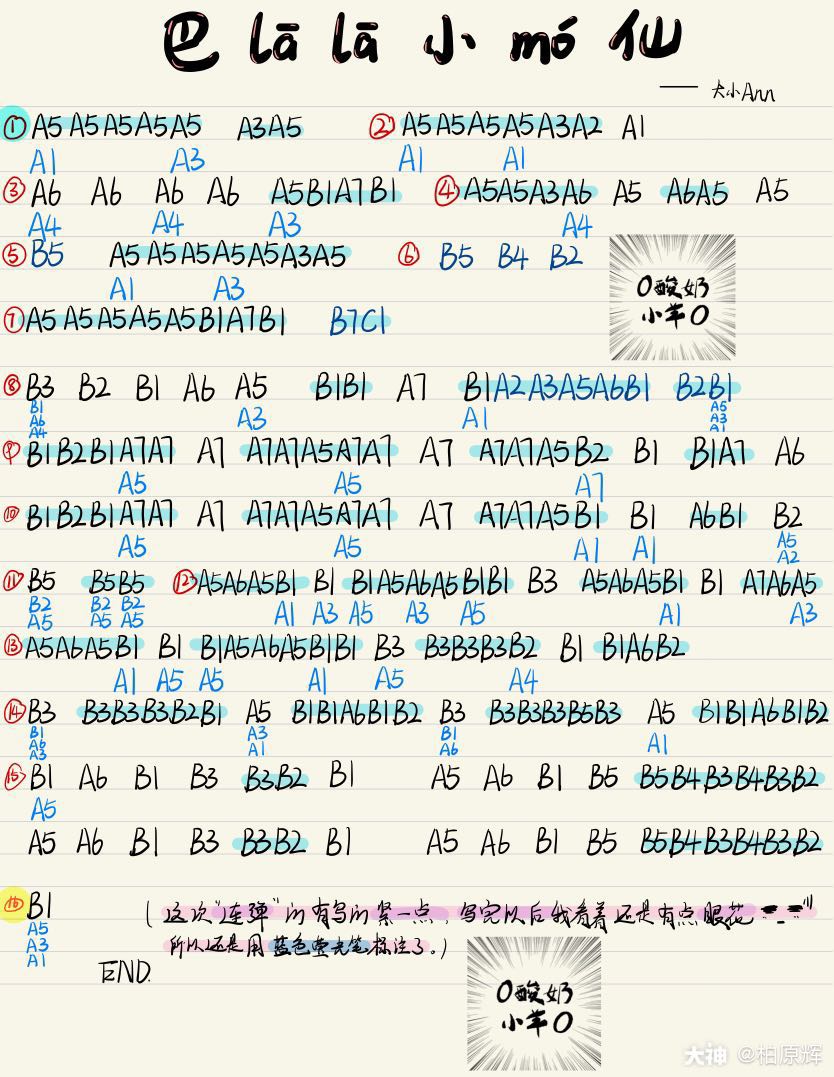 巴 lā lā 小 mó 仙
—— 大小Ann
① A5A5A5A5A5 A3A5 ② A5A5A5A5A3A2 A1
A1 A3 A1 A1
③ A6 A6 A6 A6 A5B1A7B1 ④ A5A5A3A6 A5 A6A5 A5
A4 A4 A3 A4
⑤ B5 A5A5A5A5A5A3A5 ⑥ B5 B4 B2
A1 A3
O酸奶
小羊O
⑦ A5A5A5A5A5B1A7B1 B7C1
⑧ B3 B2 B1 A6 A5 B1B1 A7 B1A2A3A5A6B1 B2B1
B1 A3 A1 A5
A6 A3
A4 A1
⑨ B1B2B1A7A7 A7 A7A7A5A7A7 A7 A7A7A5B2 B1 B1A7 A6
A5 A5 A7
⑩ B1B2B1A7A7 A7 A7A7A5A7A7 A7 A7A7A5B1 B1 A6B1 B2
A5 A5 A1 A1 A5
A2
⑪ B5 B5B5 ⑫ A5A6A5B1 B1 B1A5A6A5B1B1 B3 A5A6A5B1 B1 A7A6A5
B2 B2 B2 A1 A3 A5 A3 A5 A1 A3
A5 A5 A5
⑬ A5A6A5B1 B1 B1A5A6A5B1B1 B3 B3B3B3B2 B1 B1A6B2
A1 A5 A5 A1 A5 A4
⑭ B3 B3B3B3B2B1 A5 B1B1A6B1B2 B3 B3B3B3B5B3 A5 B1B1A6B1B2
B1 A3 B1 A1
A6 A1 A6
A3
⑮ B1 A6 B1 B3 B3B2 B1 A5 A6 B1 B5 B5B4B3B4B3B2
A5
A5 A6 B1 B3 B3B2 B1 A5 A6 B1 B5 B5B4B3B4B3B2
⑯ B1
A5
A3
A1
(这次"连弹"的有写的紧一点,写完以后我看着还是有点眼花
所以还是用蓝色荧光笔标注了。)
END.
O酸奶
小羊O
大神 @柏原辉